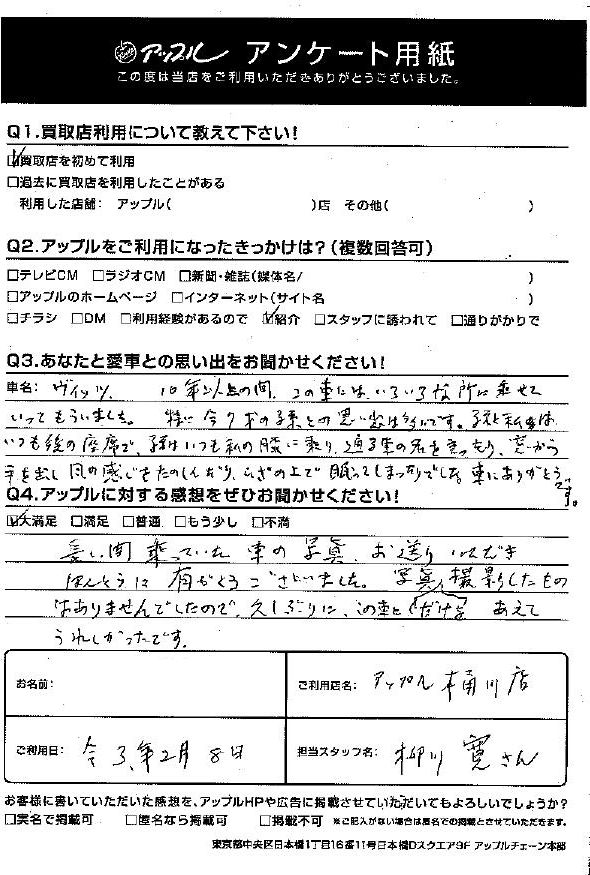 アップル アンケート用紙
この度は当店をご利用いただきありがとうございました。
Q1.買取店利用について教えて下さい!
☑買取店を初めて利用
□過去に買取店を利用したことがある
利用した店舗: アップル( )店 その他( )
Q2.アップルをご利用になったきっかけは?(複数回答可)
□テレビCM □ラジオCM □新聞・雑誌(媒体名/ )
□アップルのホームページ □インターネット(サイト名 )
□チラシ □DM □利用経験があるので ☑紹介 □スタッフに誘われて □通りがかりで
Q3.あなたと愛車との思い出をお聞かせください!
車名: ヴィッツ. 10年以上の間、この車には、いろいろな所に乗せて
いってもらいました。 特に今9才の子系との思い出は多いです。子系と私は
いつも後の座席で、子系はいつも私の膝に乗り、通る車の名を言ったり、窓から
手を出し風の感じをたのしんだり、ひざの上で眠ってしまったりでした。車にありがとうです。
Q4.アップルに対する感想をぜひお聞かせください!
☑大満足 □満足 □普通 □もう少し □不満
長い間乗っていた車の写真、お送りいただき
ほんとうに有がとうございました。 写真撮影したもの
はありませんでしたので、久しぶりに、この車と あえて
うれしかったです。
お名前:
ご利用店名: アップル桶川店
ご利用日: 令3年2月8日
担当スタッフ名: 柳川 寛さん
お客様に書いていただいた感想を、アップルHPや広告に掲載させていただいてもよろしいでしょうか?
□実名で掲載可 □匿名なら掲載可 □掲載不可 ※ご記入がない場合は匿名での掲載とさせていただきます。
東京都中央区日本橋1丁目16番11号日本橋Dスクエア9F アップルチェーン本部